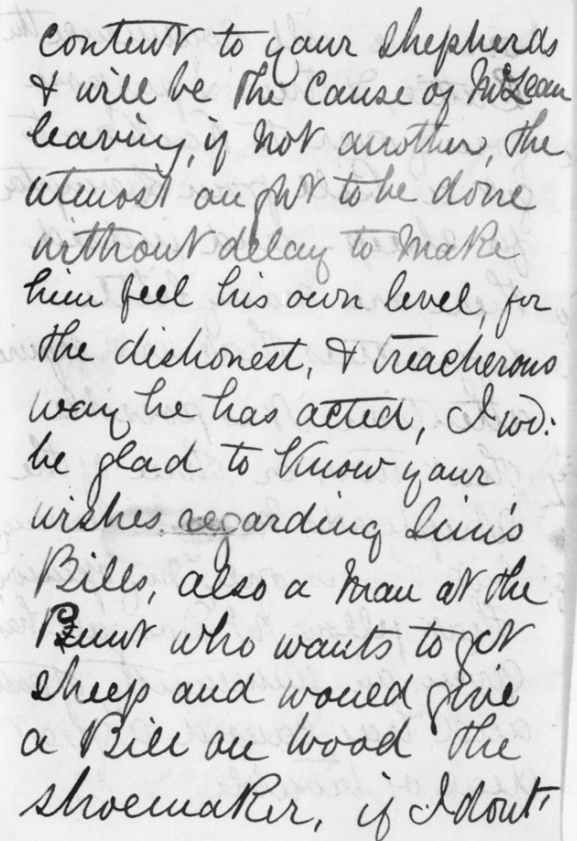 content to your shepherds
& will be the cause of McLean
leaving, if not another, the
utmost ought to be done
without delay to make
him feel his own level, for
the dishonest, & treacherous
way he has acted, I wd:
be glad to know your
wishes regarding Sim's
Bills, also a man at the
who wants to get
sheep and would give
a Bill on Wood the
shoemaker, if I don't